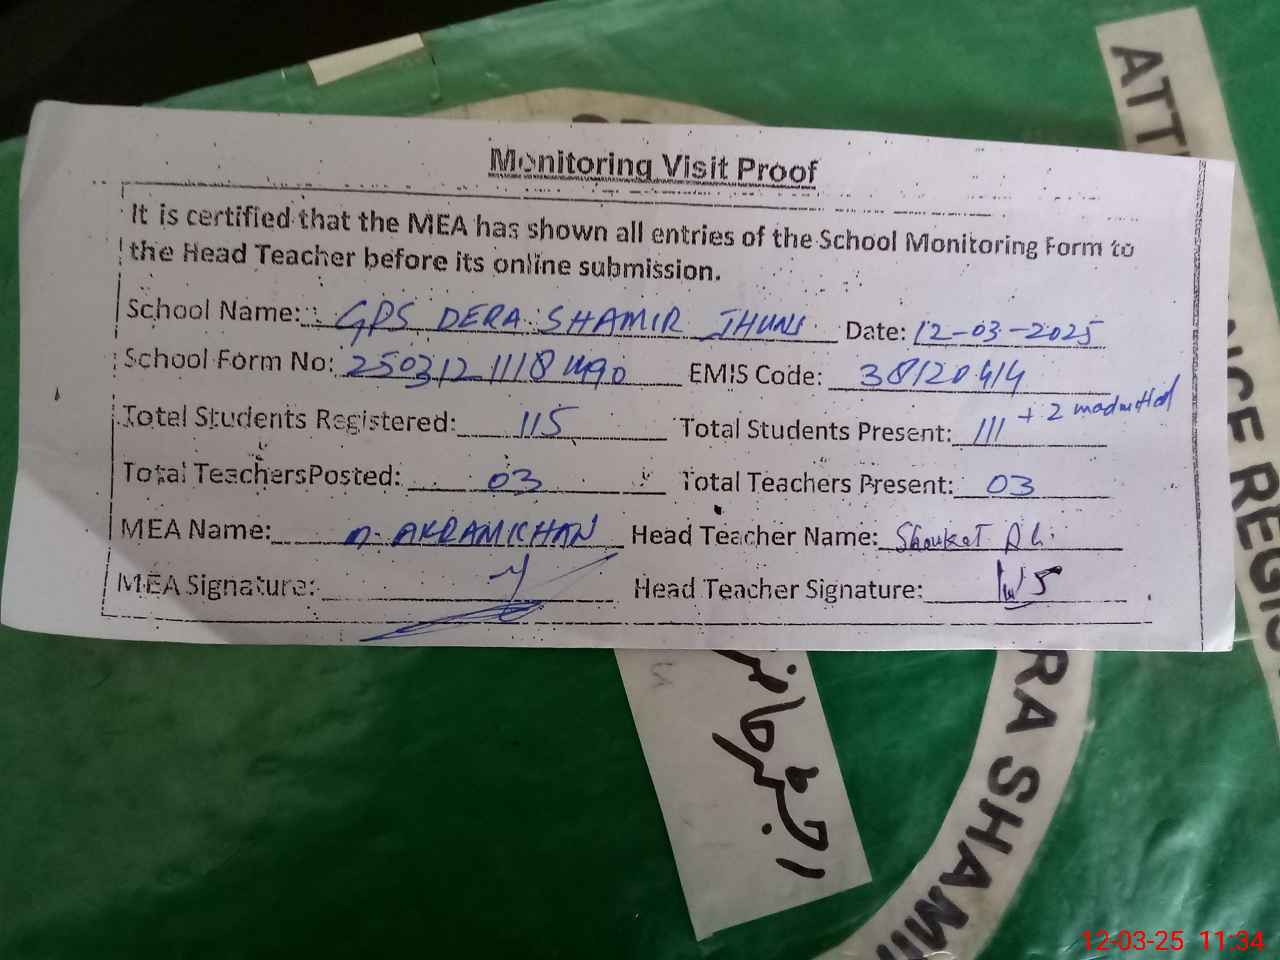 Monitoring Visit Proof
It is certified that the MEA has shown all entries of the School Monitoring Form to
the Head Teacher before its online submission.
School Name: GPS DERA SHAMIR JHUNS Date: 12-03-2025
School Form No: EMIS Code: 38120414
Total Students Registered: 115 Total Students Present: 111 + 2
Total TeachersPosted: 03 Total Teachers Present: 03
MEA Name: M. AKRAM KHAN Head Teacher Name: Shoukat Ali
MEA Signature: Head Teacher Signature:
رجسٹر حاضری
RA SHAMIR
12-03-25 11:34